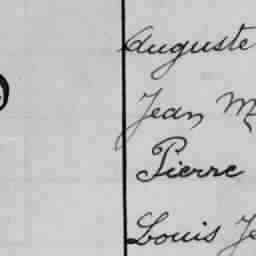 Auguste
Jean M
Pierre
Louis Je